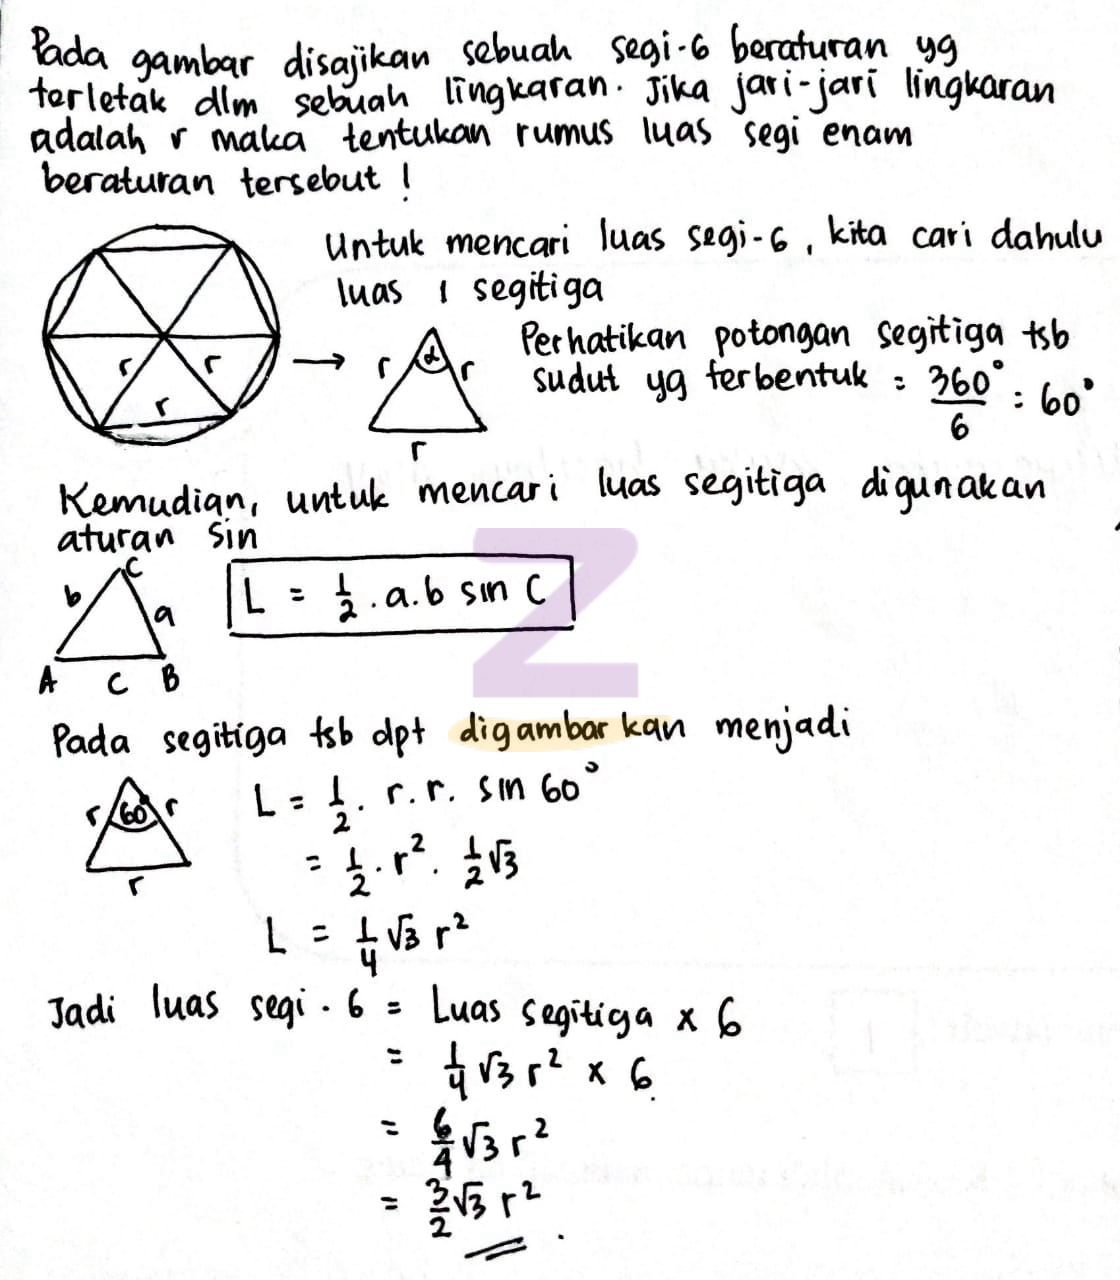 Pada gambar disajikan sebuah segi-6 beraturan yg
terletak dlm sebuah lingkaran. Jika jari-jari lingkaran
adalah r maka tentukan rumus luas segi enam
beraturan tersebut !
Untuk mencari luas segi-6, kita cari dahulu
luas 1 segitiga
r r
r
→
r α r
r
Perhatikan potongan segitiga tsb
sudut yg terbentuk = 360°/6 = 60°
Kemudian, untuk mencari luas segitiga digunakan
aturan Sin
C
b a
A C B
L = 1/2 . a.b sin C
Z
Pada segitiga tsb dpt digambar kan menjadi
r 60° r
r
L = 1/2 . r. r. sin 60°
= 1/2 . r². 1/2 √3
L = 1/4 √3 r²
Jadi luas segi - 6 = Luas segitiga x 6
= 1/4 √3 r² x 6
= 6/4 √3 r²
= 3/2 √3 r²